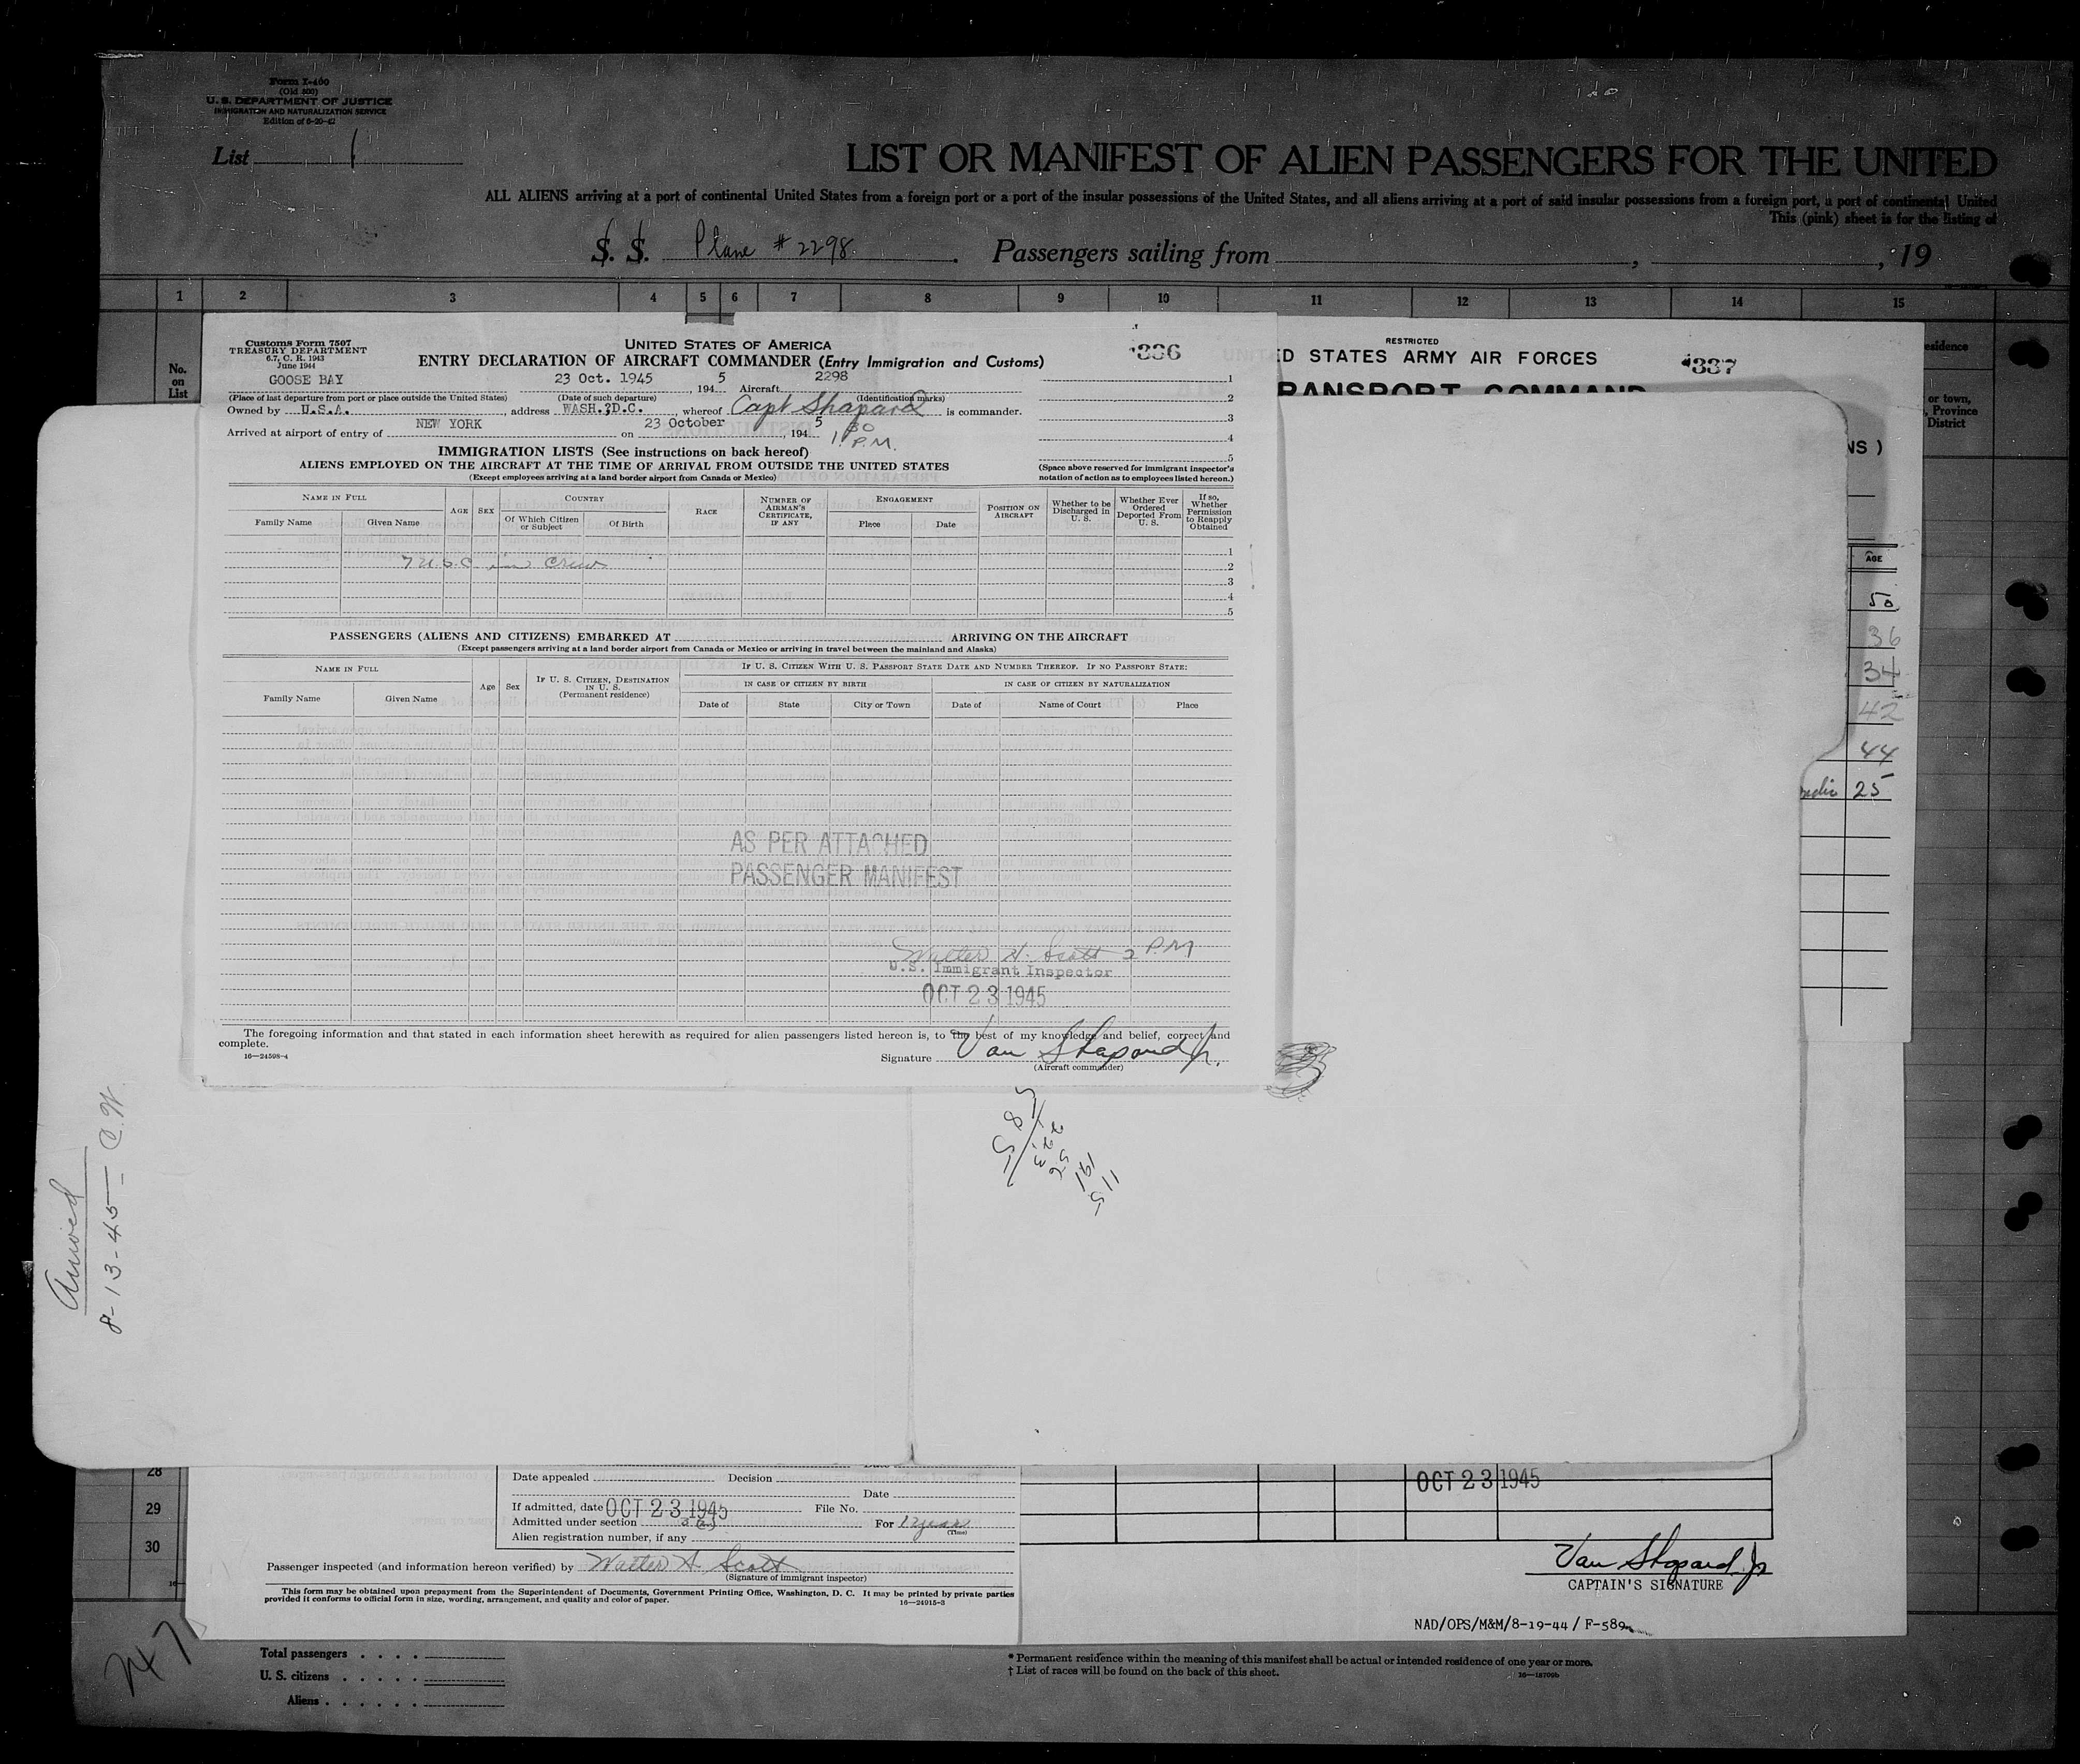 Form I-460
(Old 500)
U. S. DEPARTMENT OF JUSTICE
IMMIGRATION AND NATURALIZATION SERVICE
Edition of 6-20-42
List 1
LIST OR MANIFEST OF ALIEN PASSENGERS FOR THE UNITED
ALL ALIENS arriving at a port of continental United States from a foreign port or a port of the insular possessions of the United States, and all aliens arriving at a port of said insular possessions from a foreign port, a port of continental United
This (pink) sheet is for the listing of
S. S. Plane # 2298. Passengers sailing from , , 19
1 2 3 4 5 6 7 8 9 10 11 12 13 14 15
No.
on
List
Customs Form 7507
TREASURY DEPARTMENT
6.7, C. R. 1943
June 1944
UNITED STATES OF AMERICA
ENTRY DECLARATION OF AIRCRAFT COMMANDER (Entry Immigration and Customs)
336
GOOSE BAY 23 Oct. 1945 , 194 5 Aircraft 2298
(Place of last departure from port or place outside the United States) (Date of such departure) (Identification marks)
Owned by U.S.A. , address WASH.?D.C. , whereof Capt Shapard is commander.
Arrived at airport of entry of NEW YORK on 23 October , 194 5 1 30 P.M.
1
2
3
4
5
IMMIGRATION LISTS (See instructions on back hereof)
ALIENS EMPLOYED ON THE AIRCRAFT AT THE TIME OF ARRIVAL FROM OUTSIDE THE UNITED STATES
(Except employees arriving at a land border airport from Canada or Mexico)
(Space above reserved for immigrant inspector's
notation of action as to employees listed hereon.)
NAME IN FULL
Family Name Given Name
AGE SEX
COUNTRY
Of Which Citizen or Subject Of Birth
RACE
NUMBER OF AIRMAN'S CERTIFICATE, IF ANY
ENGAGEMENT
Place Date
POSITION ON AIRCRAFT
Whether to be Discharged in U. S.
Whether Ever Ordered Deported From U. S.
If so, Whether Permission to Reapply Obtained
7 U.S.C in Crew
1
2
3
4
5
PASSENGERS (ALIENS AND CITIZENS) EMBARKED AT ARRIVING ON THE AIRCRAFT
(Except passengers arriving at a land border airport from Canada or Mexico or arriving in travel between the mainland and Alaska)
NAME IN FULL
Family Name Given Name
Age Sex
IF U. S. CITIZEN, DESTINATION IN U. S. (Permanent residence)
IF U. S. CITIZEN WITH U. S. PASSPORT STATE DATE AND NUMBER THEREOF. IF NO PASSPORT STATE:
IN CASE OF CITIZEN BY BIRTH IN CASE OF CITIZEN BY NATURALIZATION
Date of State City or Town Date of Name of Court Place
AS PER ATTACHED
PASSENGER MANIFEST
Walter H. Scott 2 P.M
U.S. Immigrant Inspector
OCT 23 1945
The foregoing information and that stated in each information sheet herewith as required for alien passengers listed hereon is, to the best of my knowledge and belief, correct and
complete.
16—24598-4
Signature Van Shapard Jr.
(Aircraft commander)
RESTRICTED
ED STATES ARMY AIR FORCES
337
RANSPORT COMMAND
esidence
or town,
, Province
District
NS )
AGE
50
36
34
42
44
25
Arrived
8-13-45 - C.W.
28
29
30
Date appealed Decision
Date
If admitted, date OCT 23 1945 File No.
Admitted under section For
(Time)
Alien registration number, if any
Passenger inspected (and information hereon verified) by Walter H. Scott
(Signature of immigrant inspector)
This form may be obtained upon prepayment from the Superintendent of Documents, Government Printing Office, Washington, D. C. It may be printed by private parties
provided it conforms to official form in size, wording, arrangement, and quality and color of paper.
16—24915-3
OCT 23 1945
Van Shapard Jr
CAPTAIN'S SIGNATURE
NAD/OPS/M&M/8-19-44 / F-589
247
Total passengers
U. S. citizens
Aliens
* Permanent residence within the meaning of this manifest shall be actual or intended residence of one year or more.
† List of races will be found on the back of this sheet.
16—18709b